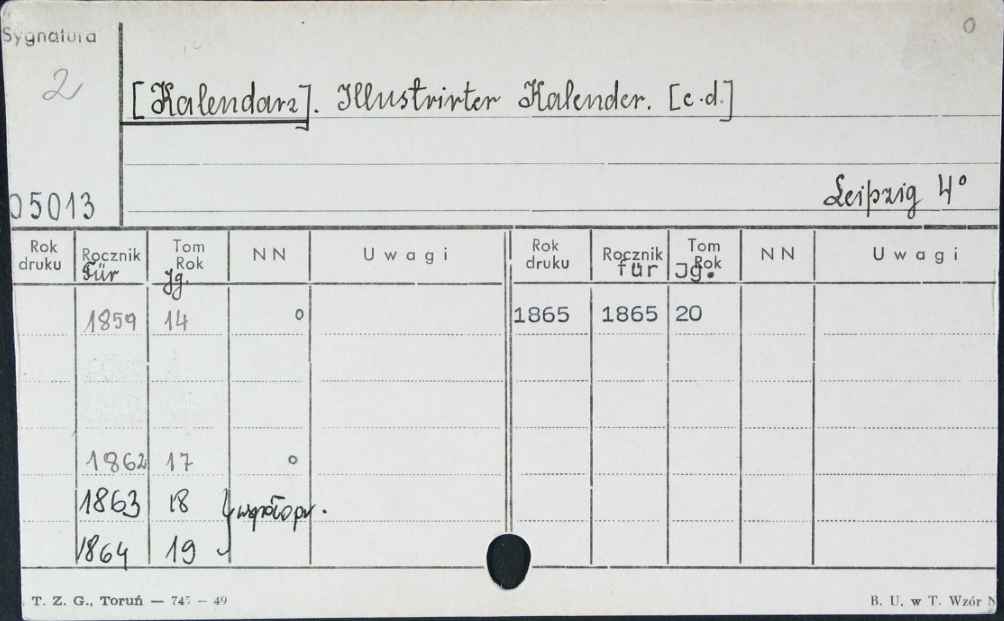 Sygnatura
o
2
[Kalendarz]. Illustrirter Kalender. [c.d.]
05013
Leipzig 4°
Rok druku Rocznik Für Tom Rok Jg. NN Uwagi Rok druku Rocznik für Tom Rok Jg. NN Uwagi
1859 14 o 1865 1865 20
1862 17 o
1863 18 współopr.
1864 19
T. Z. G., Toruń — 745 — 49
B. U. w T. Wzór